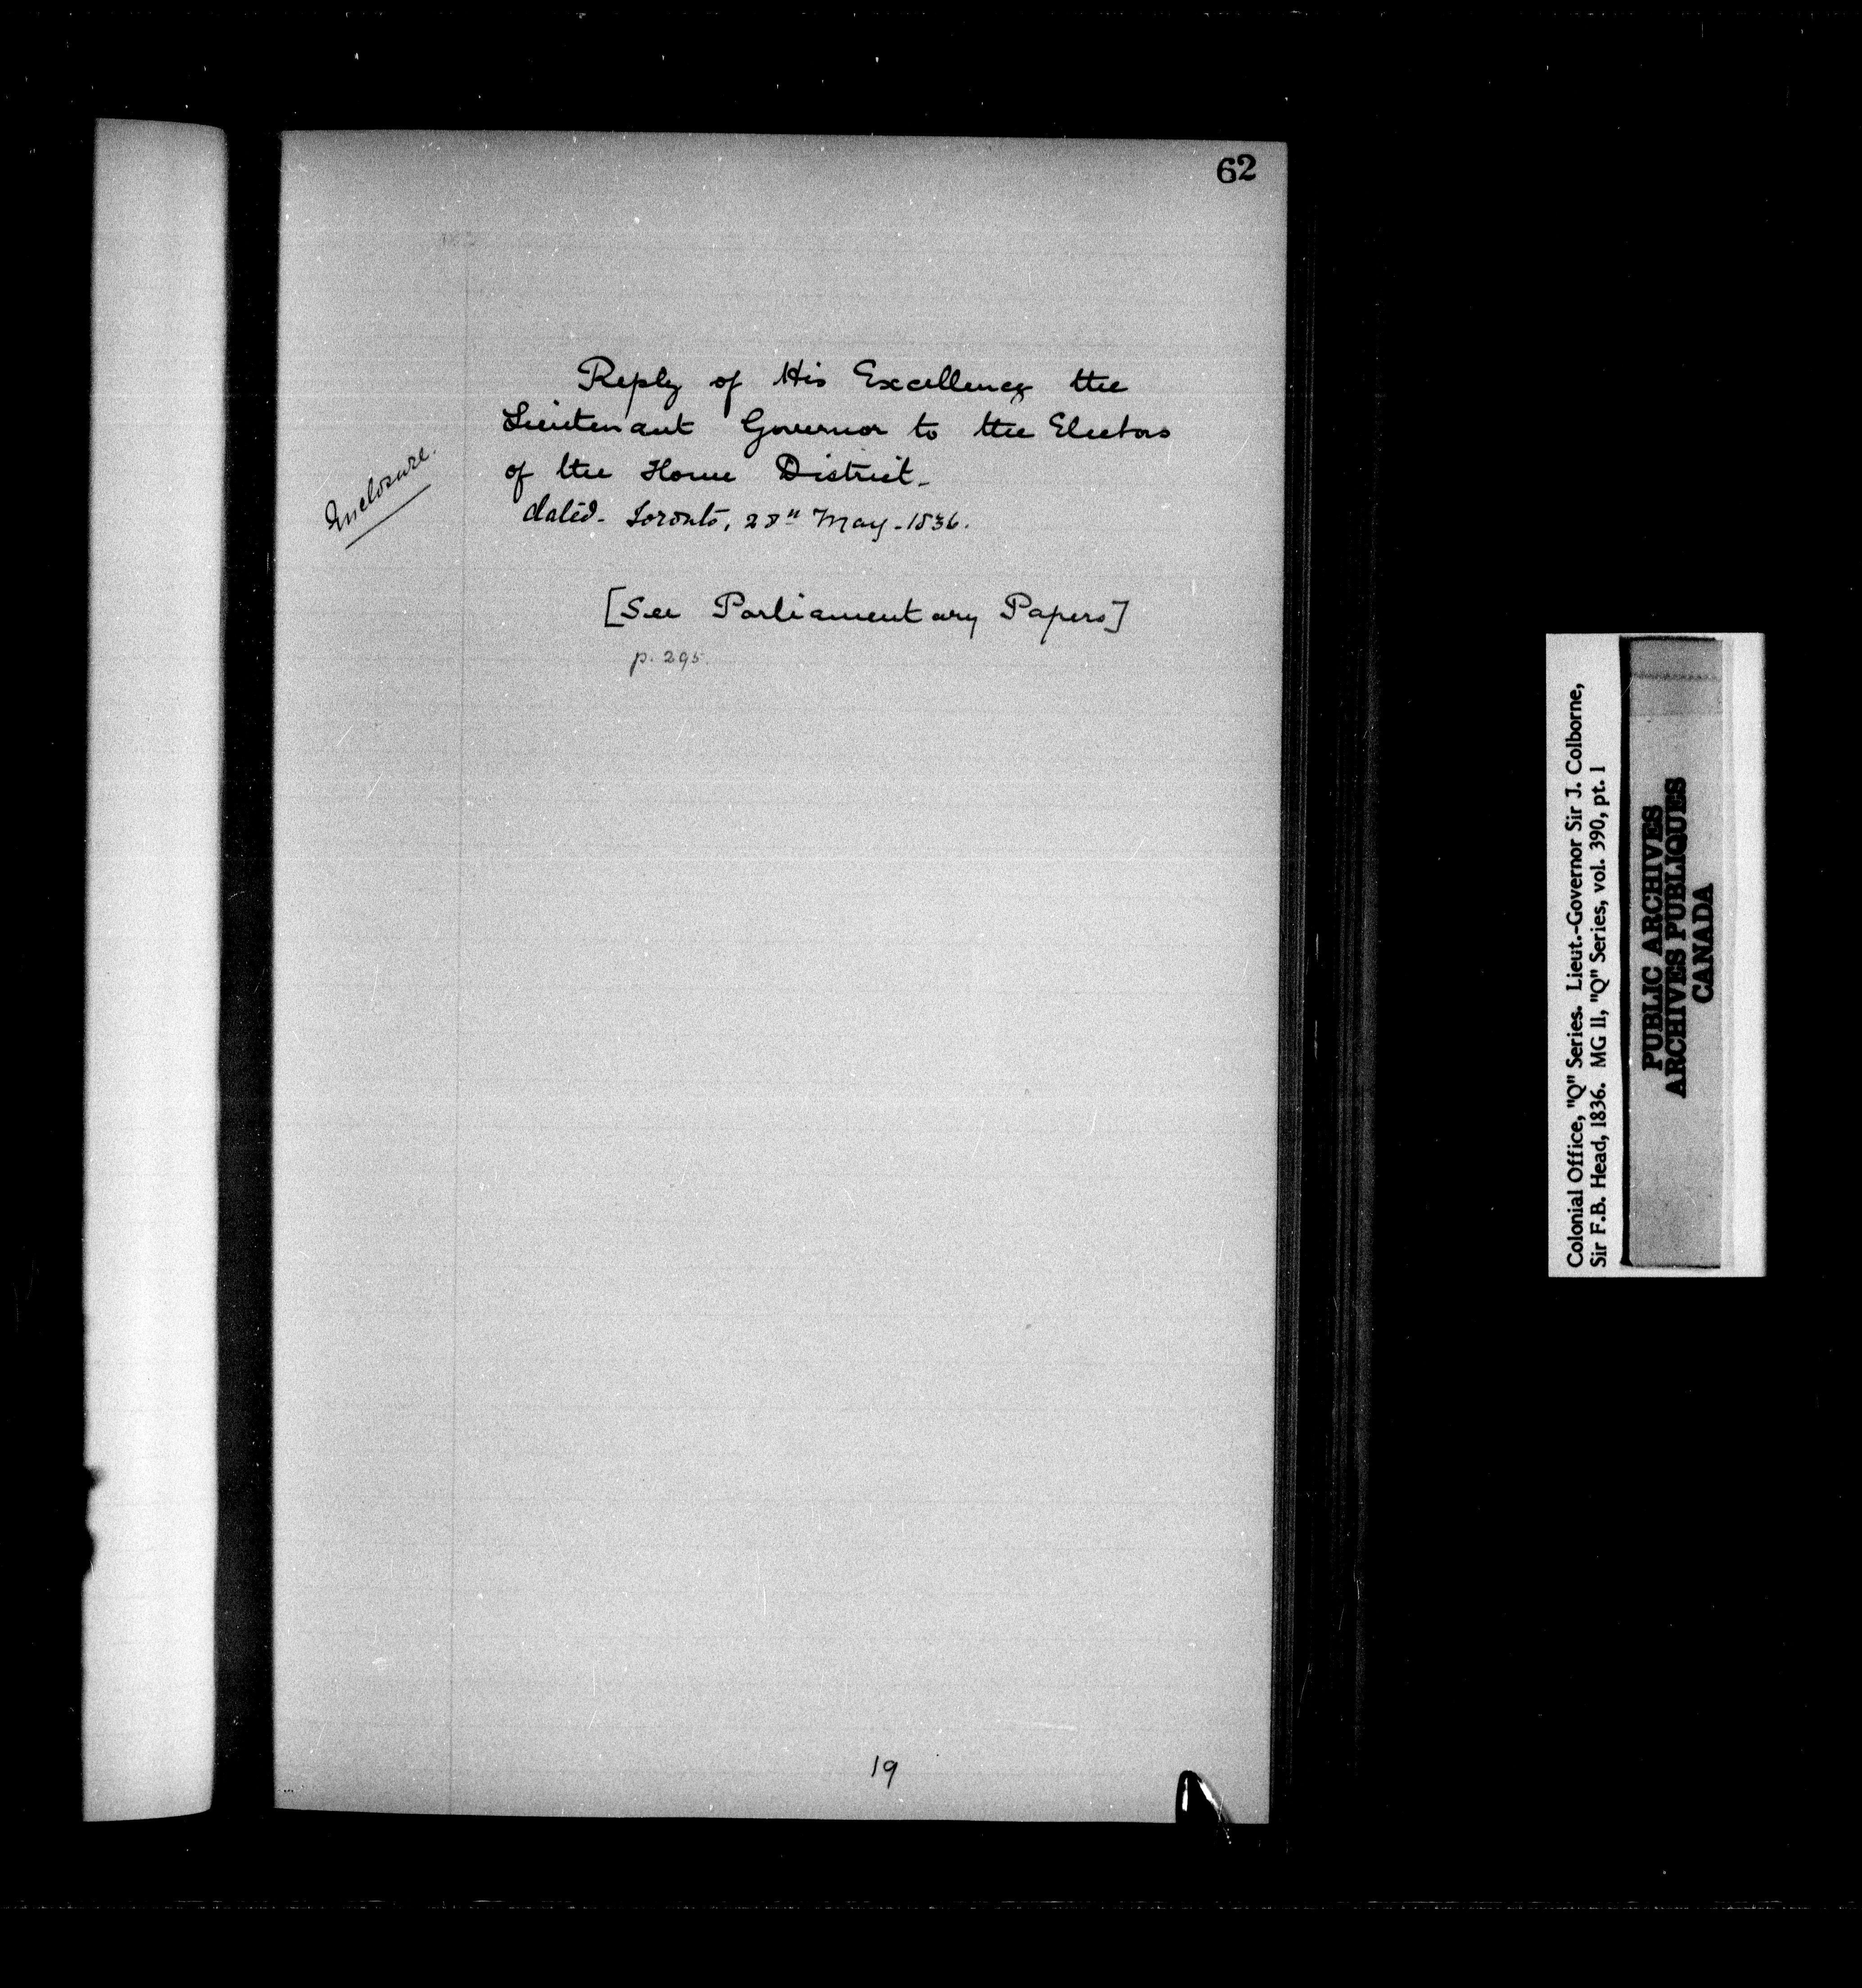 62
Reply of His Excellency the
Lieutenant Governor to the Electors
of the Home District_
dated_ Toronto, 28th May_1836.
Enclosure.
[See Parliamentary Papers]
p. 295.
19
Colonial Office, "Q" Series. Lieut.-Governor Sir J. Colborne,
Sir F.B. Head, 1836. MG 11, "Q" Series, vol. 390, pt. 1
PUBLIC ARCHIVES
ARCHIVES PUBLIQUES
CANADA